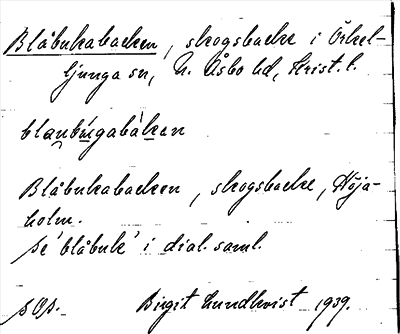 Blåbukabacken, skogsbacke i Örkel-
ljunga sn, N. Åsbo hd, Krist. l.
blaubúgabákan
Blåbukabacken, skogsbacke, Höja-
holm.
Se 'blåbuk' i dial. saml.
Birgit Lundkvist 1939.